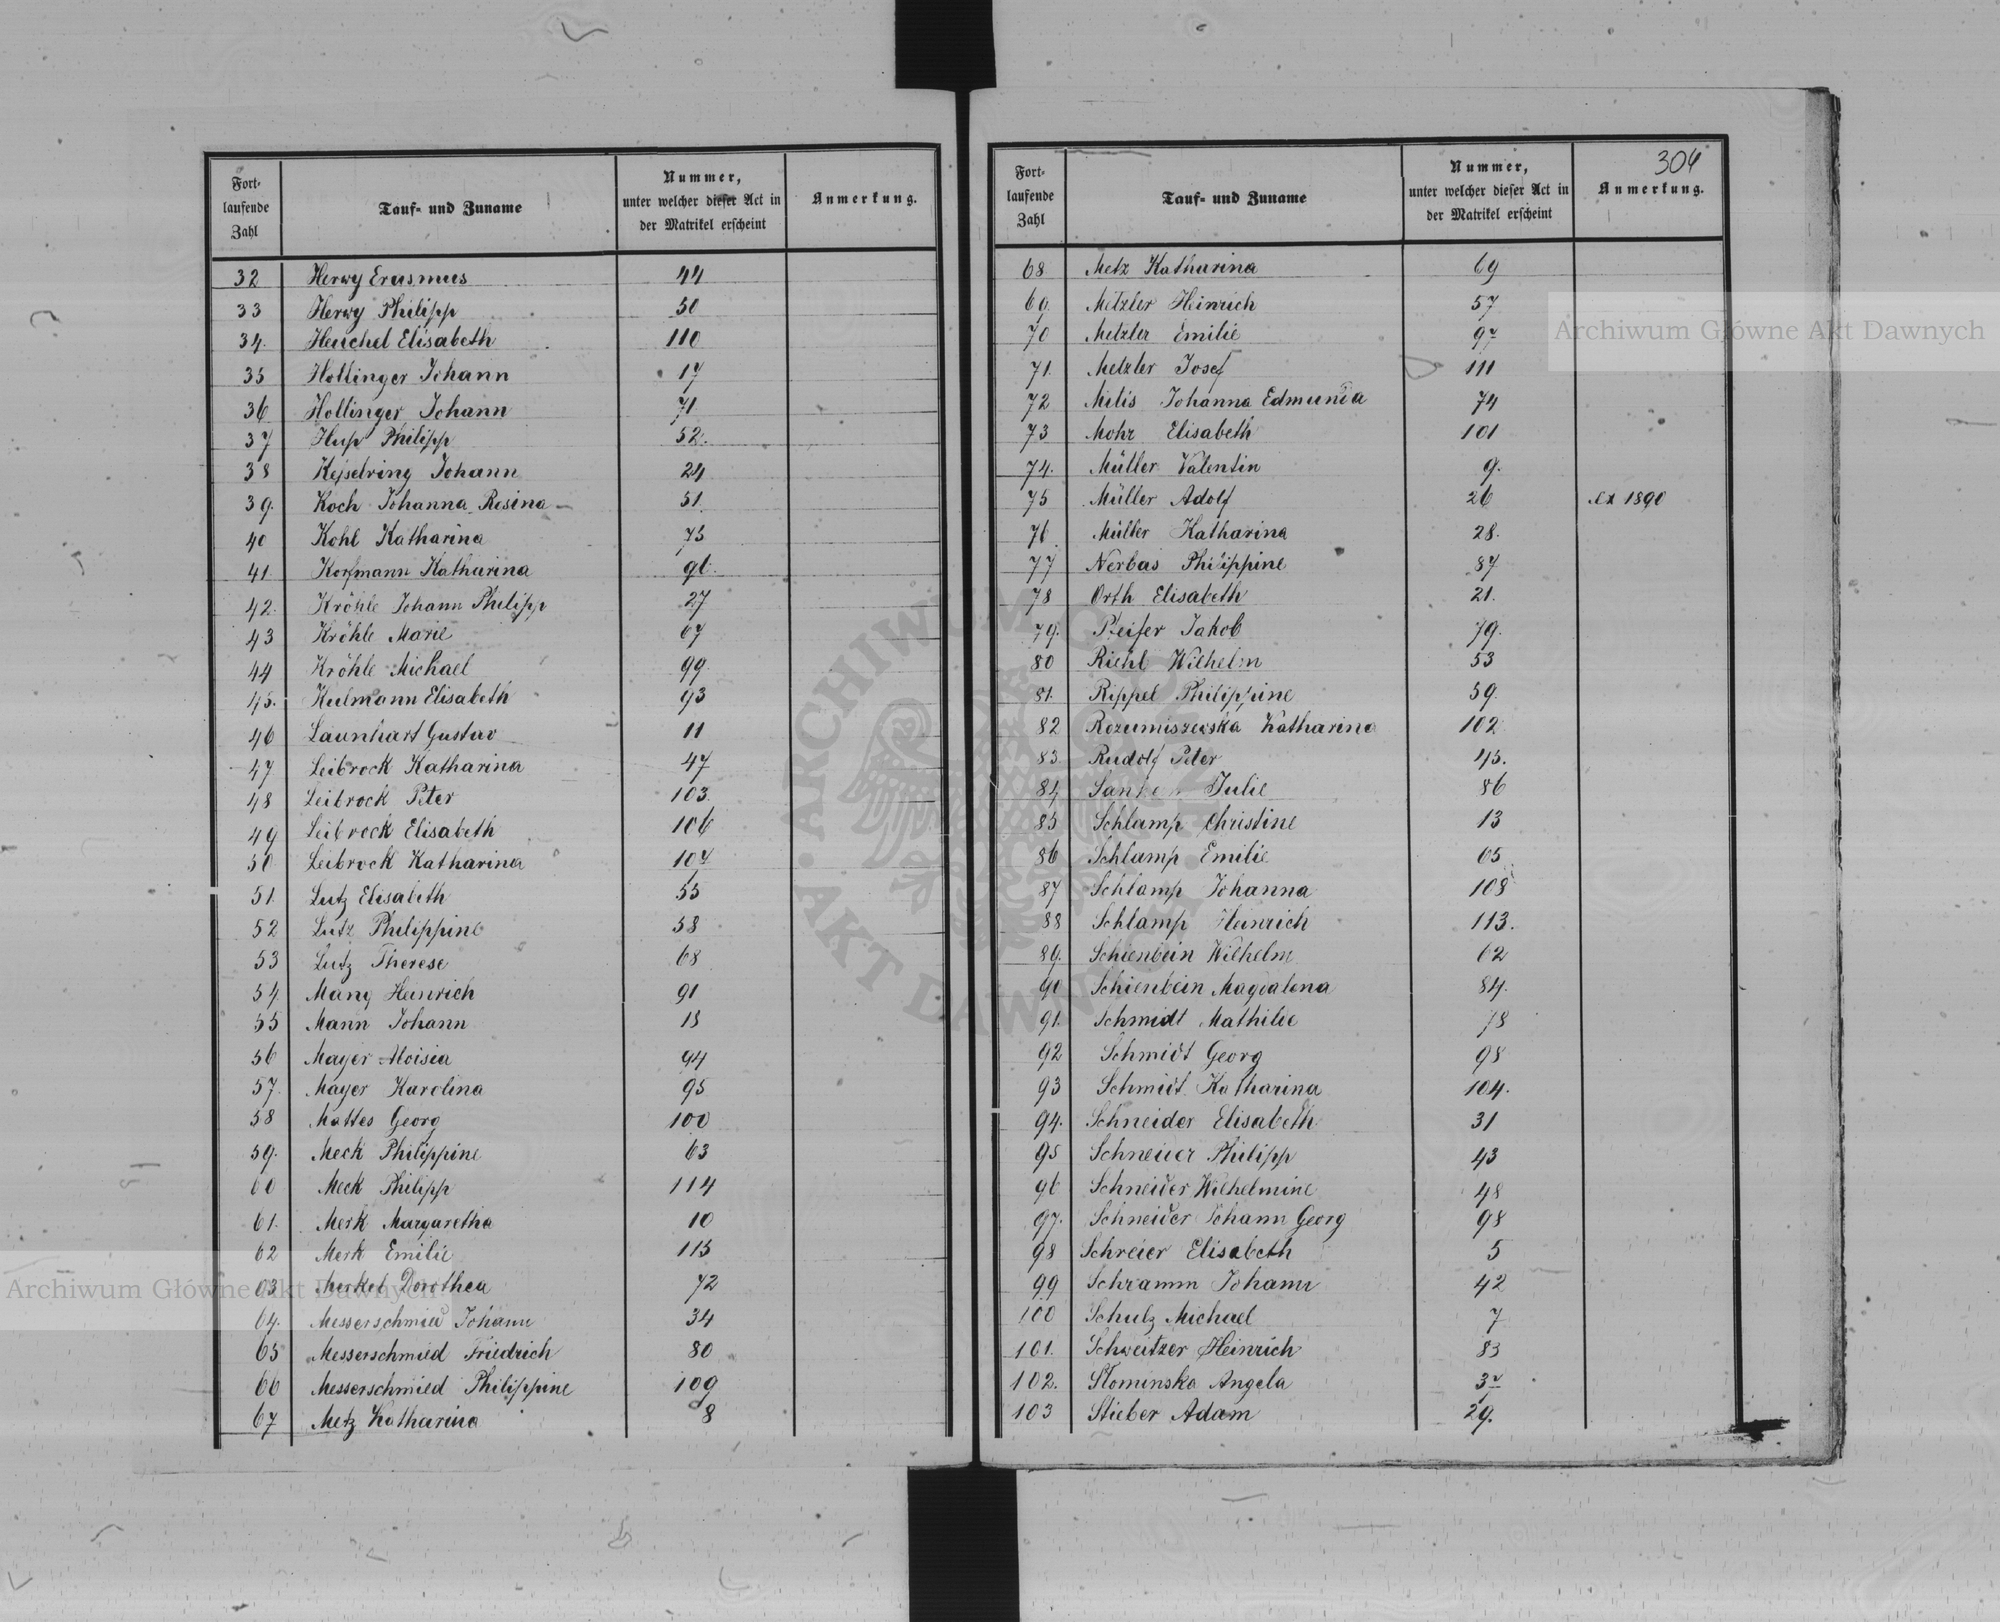 304
Fort-
laufende
Zahl
Tauf- und Zuname
Nummer,
unter welcher dieser Act in
der Matrikel erscheint
Anmerkung.
32 Herwy Erasmus 44
33 Herwy Philipp 50
34. Heuchel Elisabeth 110
35 Hollinger Johann 17
36 Hollinger Johann 71
37 Hup Philipp 52.
38 Kesselring Johann 24
39. Koch Johanna Rosina 51.
40 Kohl Katharina 75
41. Korfmann Katharina 96.
42. Kröhle Johann Philipp 27
43 Kröhle Marie 67
44 Kröhle Michael 99
45. Kulmann Elisabeth 93
46 Launhart Gustav 11
47 Leibrock Katharina 47
48 Leibrock Peter 103.
49 Leibrock Elisabeth 106
50 Leibrock Katharina 107
51. Lutz Elisabeth 55
52 Lutz Philippine 58
53 Lutz Therese 68
54. Mang Heinrich 91
55 Mann Johann 18
56 Mayer Aloisia 94
57. Mayer Karolina 95
58 Mattes Georg 100
59. Meck Philippine 63
60 Meck Philipp 114
61. Merk Margaretha 10
62 Merk Emilie 115
63 Merkel Dorothea 72
64. Messerschmied Johann 34
65 Messerschmied Friedrich 80
66 Messerschmied Philippine 109
67 Metz Katharina 8
Fort-
laufende
Zahl
Tauf- und Zuname
Nummer,
unter welcher dieser Act in
der Matrikel erscheint
Anmerkung.
68 Metz Katharina 69
69. Metzler Heinrich 57
70 Metzler Emilie 97
71. Metzler Josef 111
72 Milis Johanna Edmunda 74
73 Mohr Elisabeth 101
74. Müller Valentin 9.
75 Müller Adolf 26 ex 1890
76 Müller Katharina 28.
77 Nerbas Philippine 87
78 Orth Elisabeth 21.
79. Pfeifer Jakob 79.
80 Riehl Wilhelm 53
81. Rippel Philippine 59.
82 Rozumiszewska Katharina 102
83 Rudolf Peter 45.
84 Julie 86
85 Schlamp Christine 13
86 Schlamp Emilie 65
87 Schlamp Johanna 108
88 Schlamp Heinrich 113.
89. Schienbein Wilhelm 62
90 Schienbein Magdalena 84.
91. Schmidt Mathilie 78
92 Schmidt Georg 98
93 Schmidt Katharina 104.
94. Schneider Elisabeth 31
95 Schneider Philipp 43
96 Schneider Wilhelmine 48
97. Schneider Johann Georg 98
98 Schreier Elisabeth 5
99 Schramm Johann 42
100 Schulz Michael 7
101. Schweitzer Heinrich 83
102. Słominska Angela
103 Stieber Adam 29.
Archiwum Główne Akt Dawnych
Archiwum Główne Akt Dawnych
ARCHIWUM GŁÓWNE AKT DAWNYCH